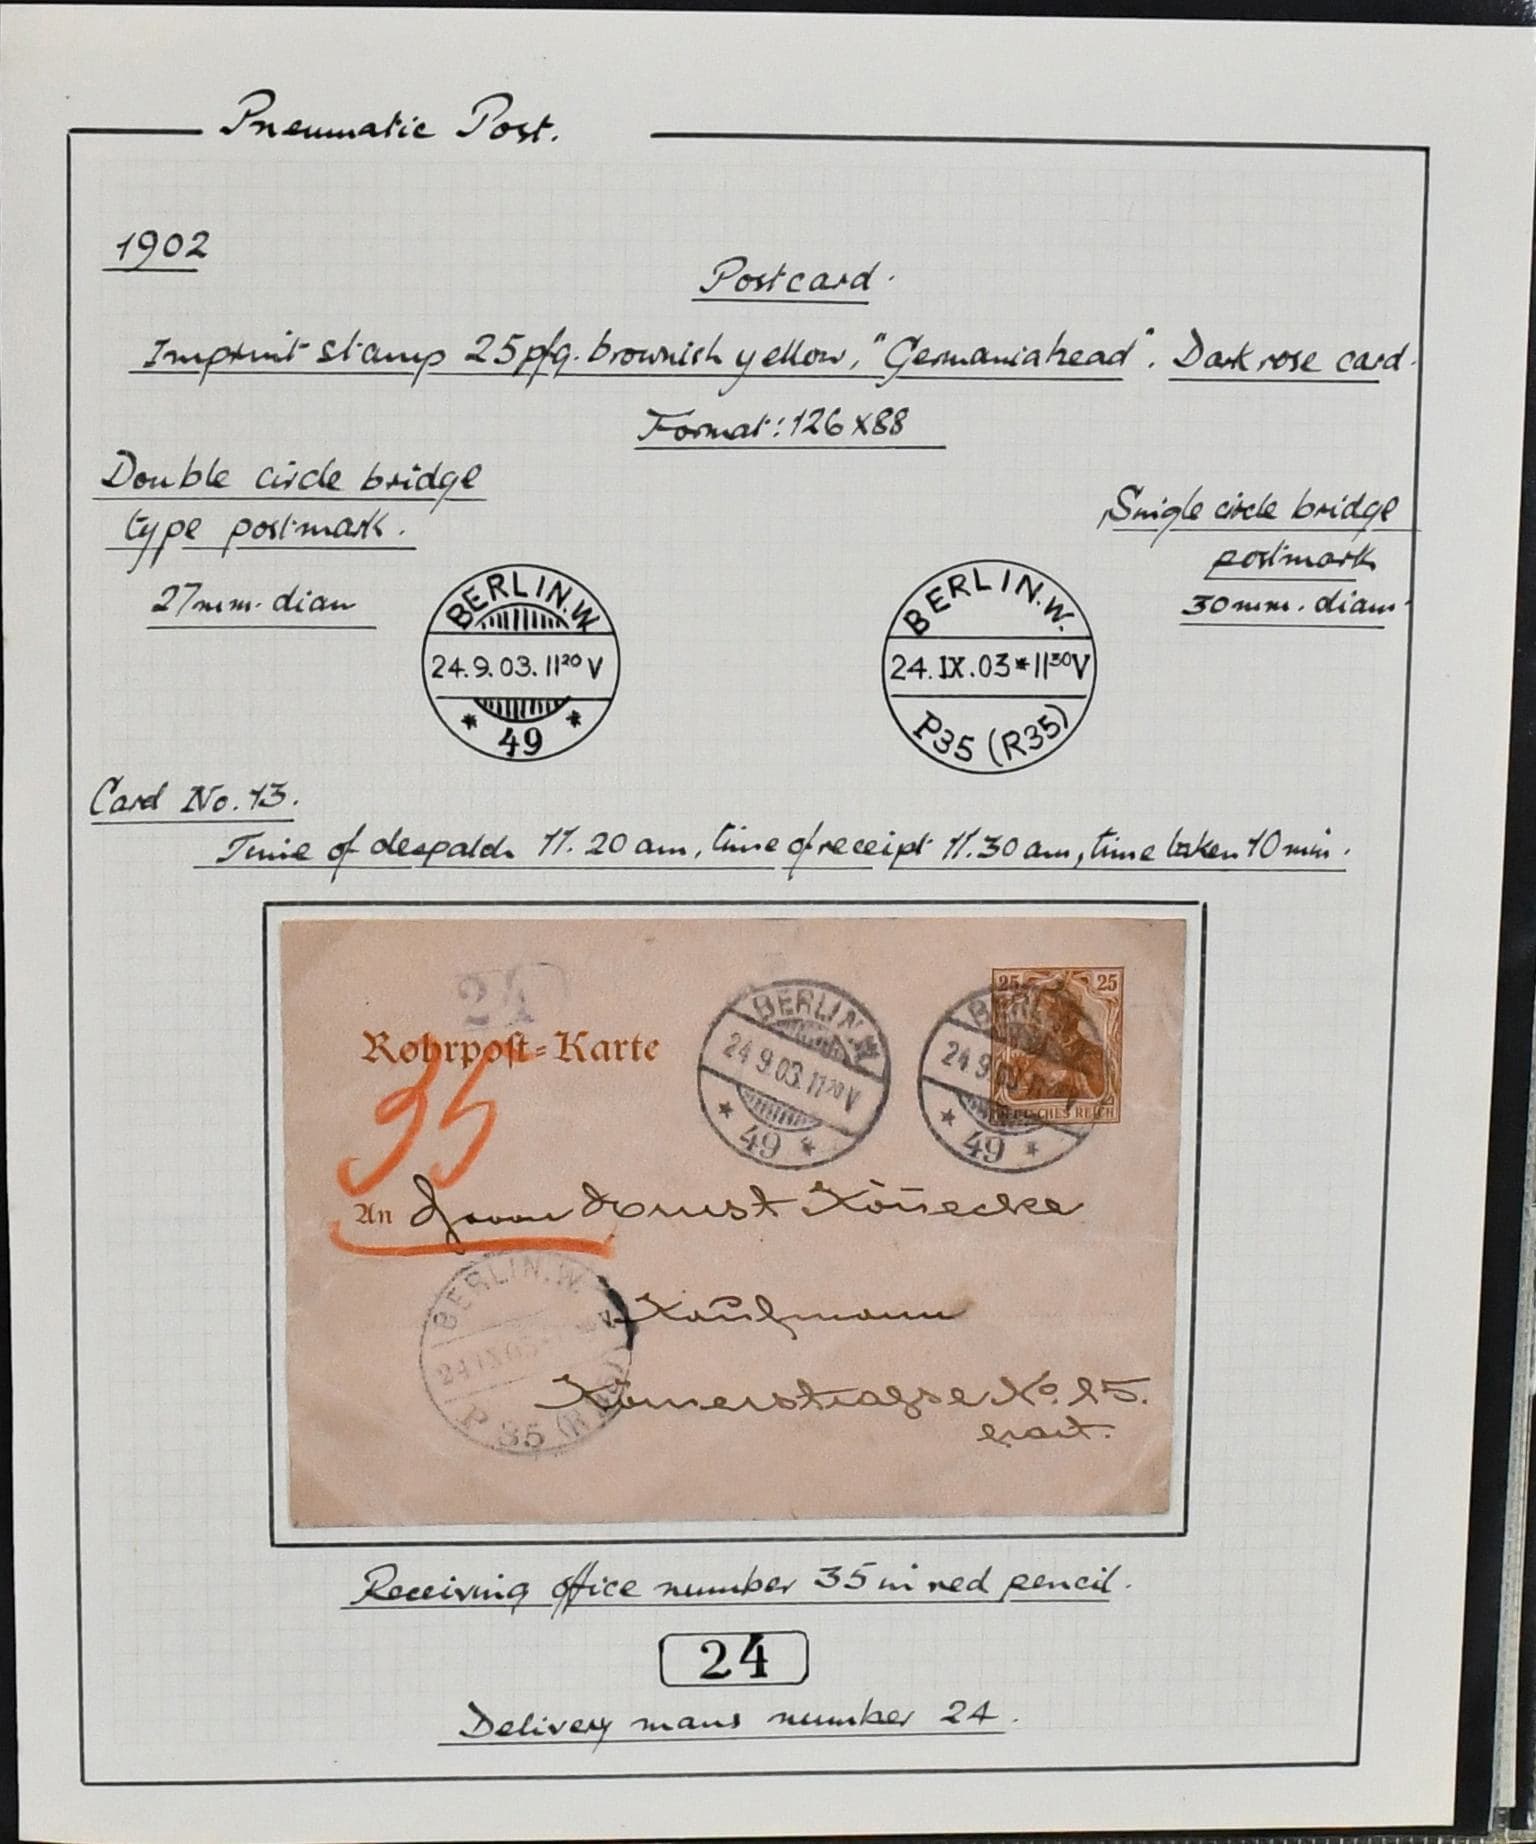 Pneumatic Post.
1902
Postcard.
Imprint stamp 25pfg. brownish yellow, "Germaniahead". Dark rose card.
Format: 126 x 88
Double circle bridge
type postmark.
27mm. diam
Single circle bridge
postmark
30mm. diam.
BERLIN.W
24.9.03.11²⁰V
* 49 *
BERLIN.W.
24.IX.03*11³⁰V
P35 (R35)
Card No. 13.
Time of despatch 11.20 am, time of receipt 11.30 am, time taken 10 min.
24
Rohrpost-Karte
35
BERLIN.W
24 9 03.11²⁰V
* 49 *
BERLIN
24 9 03.11²⁰V
* 49 *
25 25
DEUTSCHES REICH
An Herrn Ernst Könecke
BERLIN.W.
24 IX 03
P 35 (R35)
Kaufmann
No. 25.
Receiving office number 35 in red pencil.
24
Delivery mans number 24.